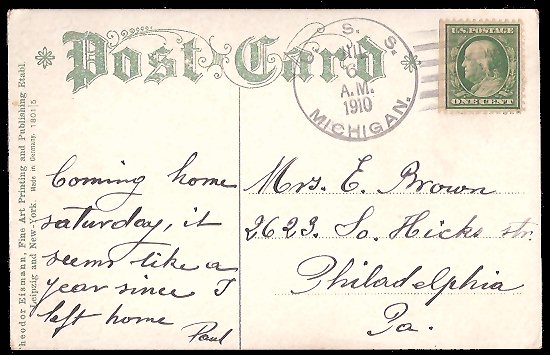 Post Card
U.S. POSTAGE
ONE CENT
U. S. S.
6
A.M.
1910
MICHIGAN.
Theodor Eismann, Fine Art Printing and Publishing Etabl.
Leipzig and New-York. Made in Germany. 180115
Coming home
saturday, it
seems like a
year since I
left home
Paul
Mrs. E. Brown
2623 So. Hicks str.
Philadelphia
Pa.